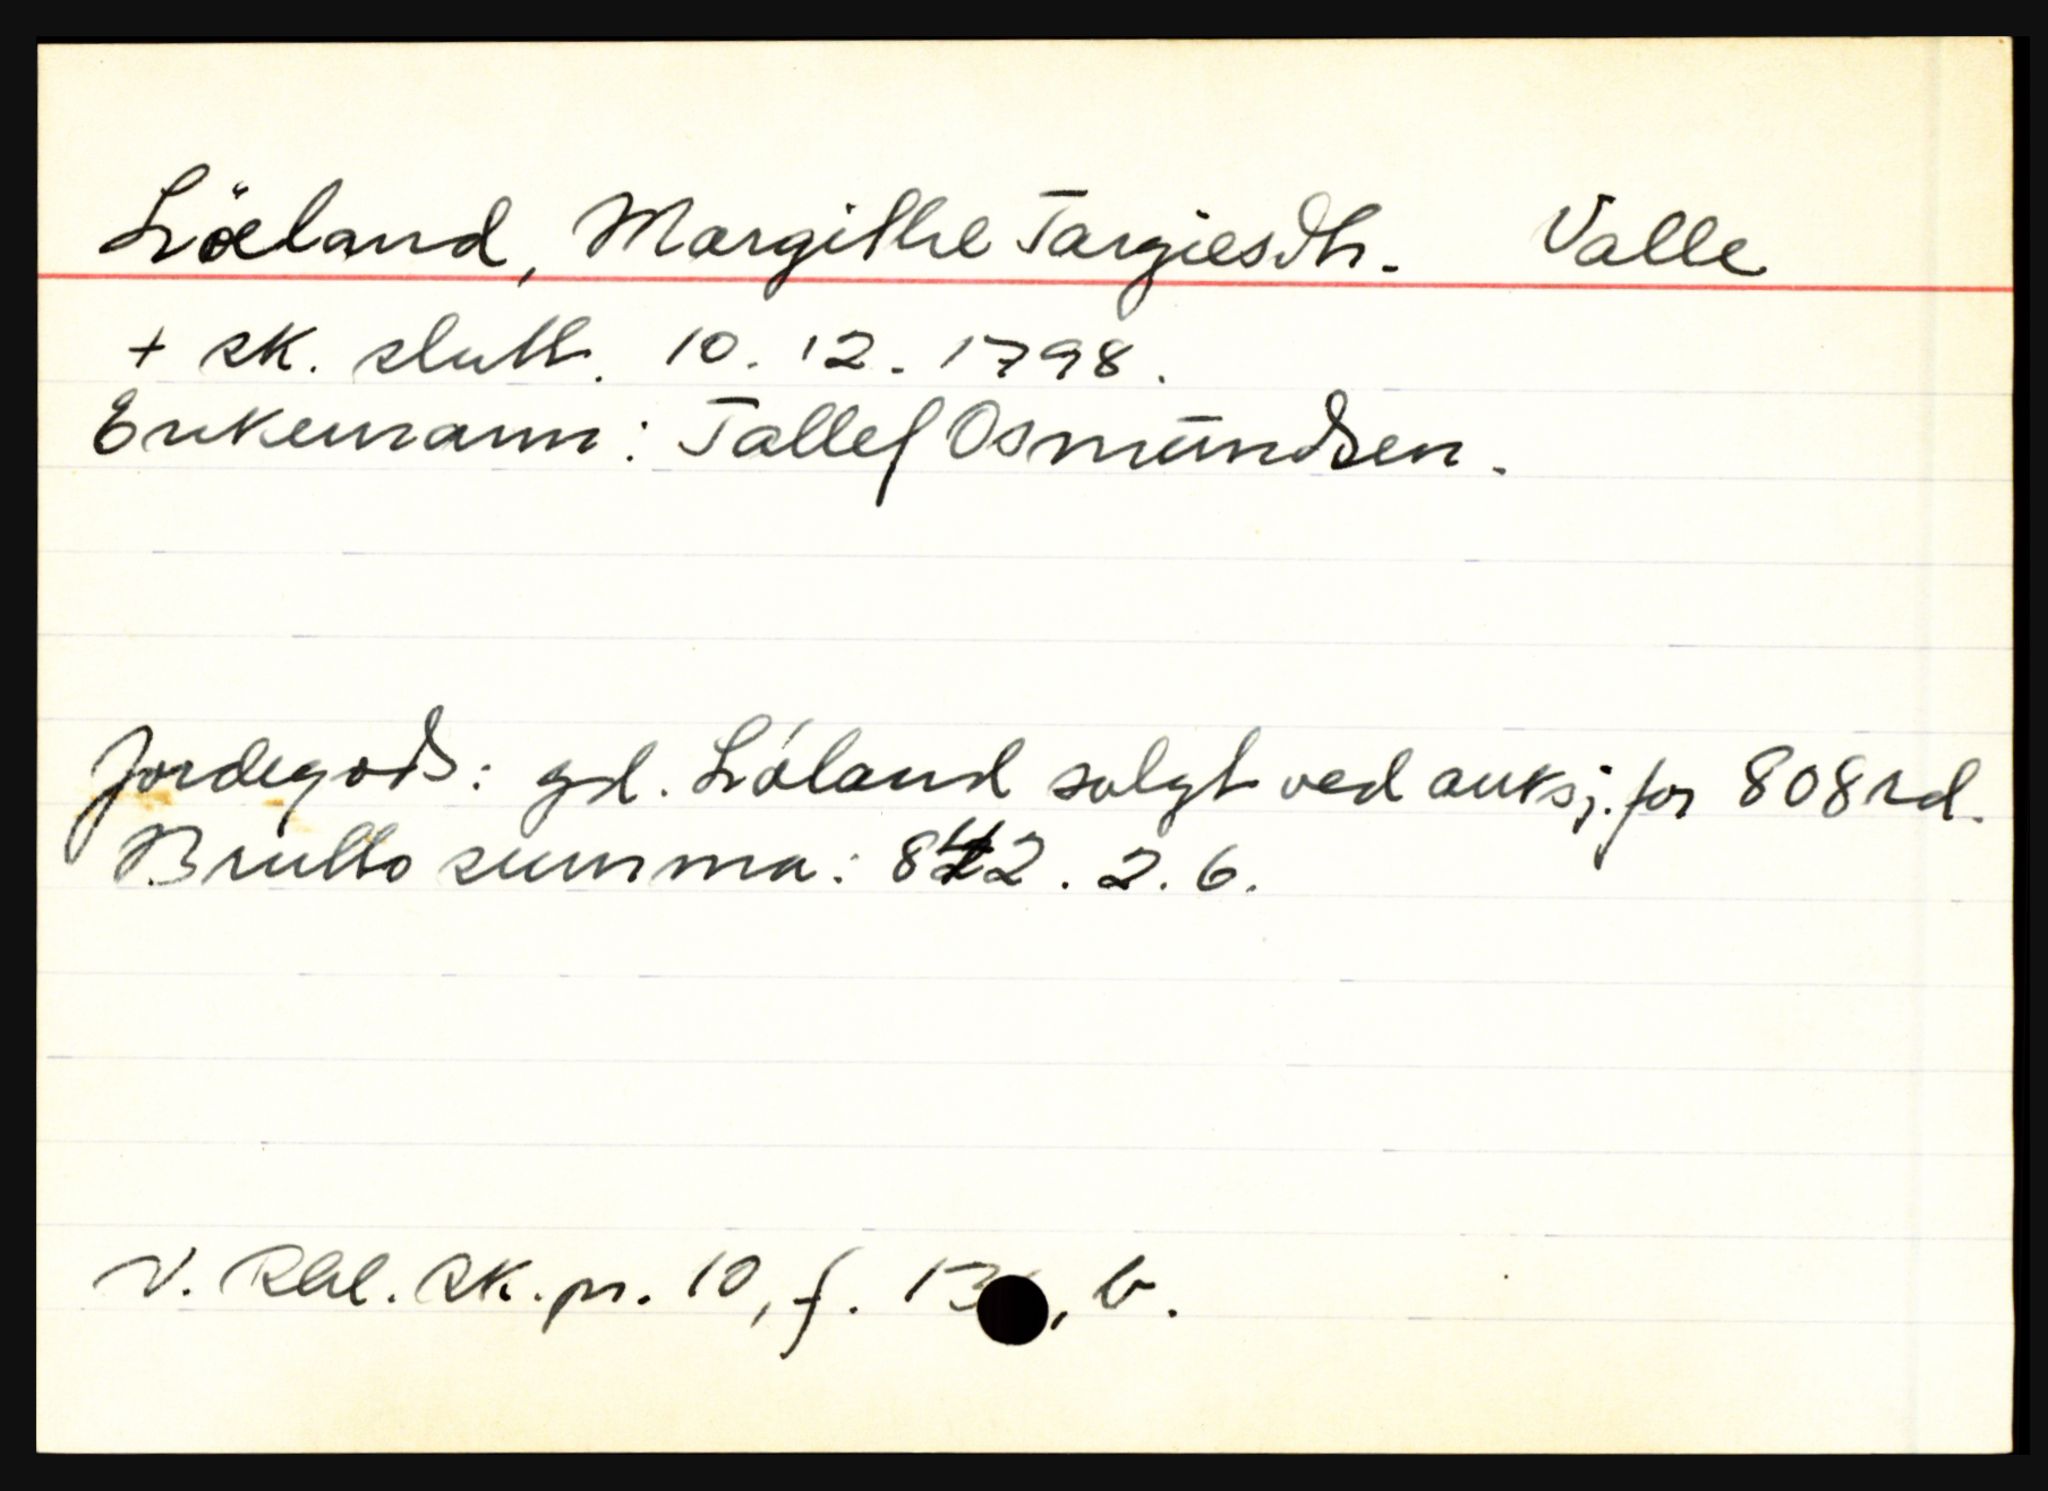 Löeland, Margithe Targiesdtr. Valle
+ sk. slutt. 10. 12. 1798.
Enkemann: Tallef Osmundsen.
Jordegods: gd. Lóland solgt ved auksj. for 808 rd.
Brutto summa: 842. 2. 6.
V. Rbl. sk. pr. 10, f. 13 , b.